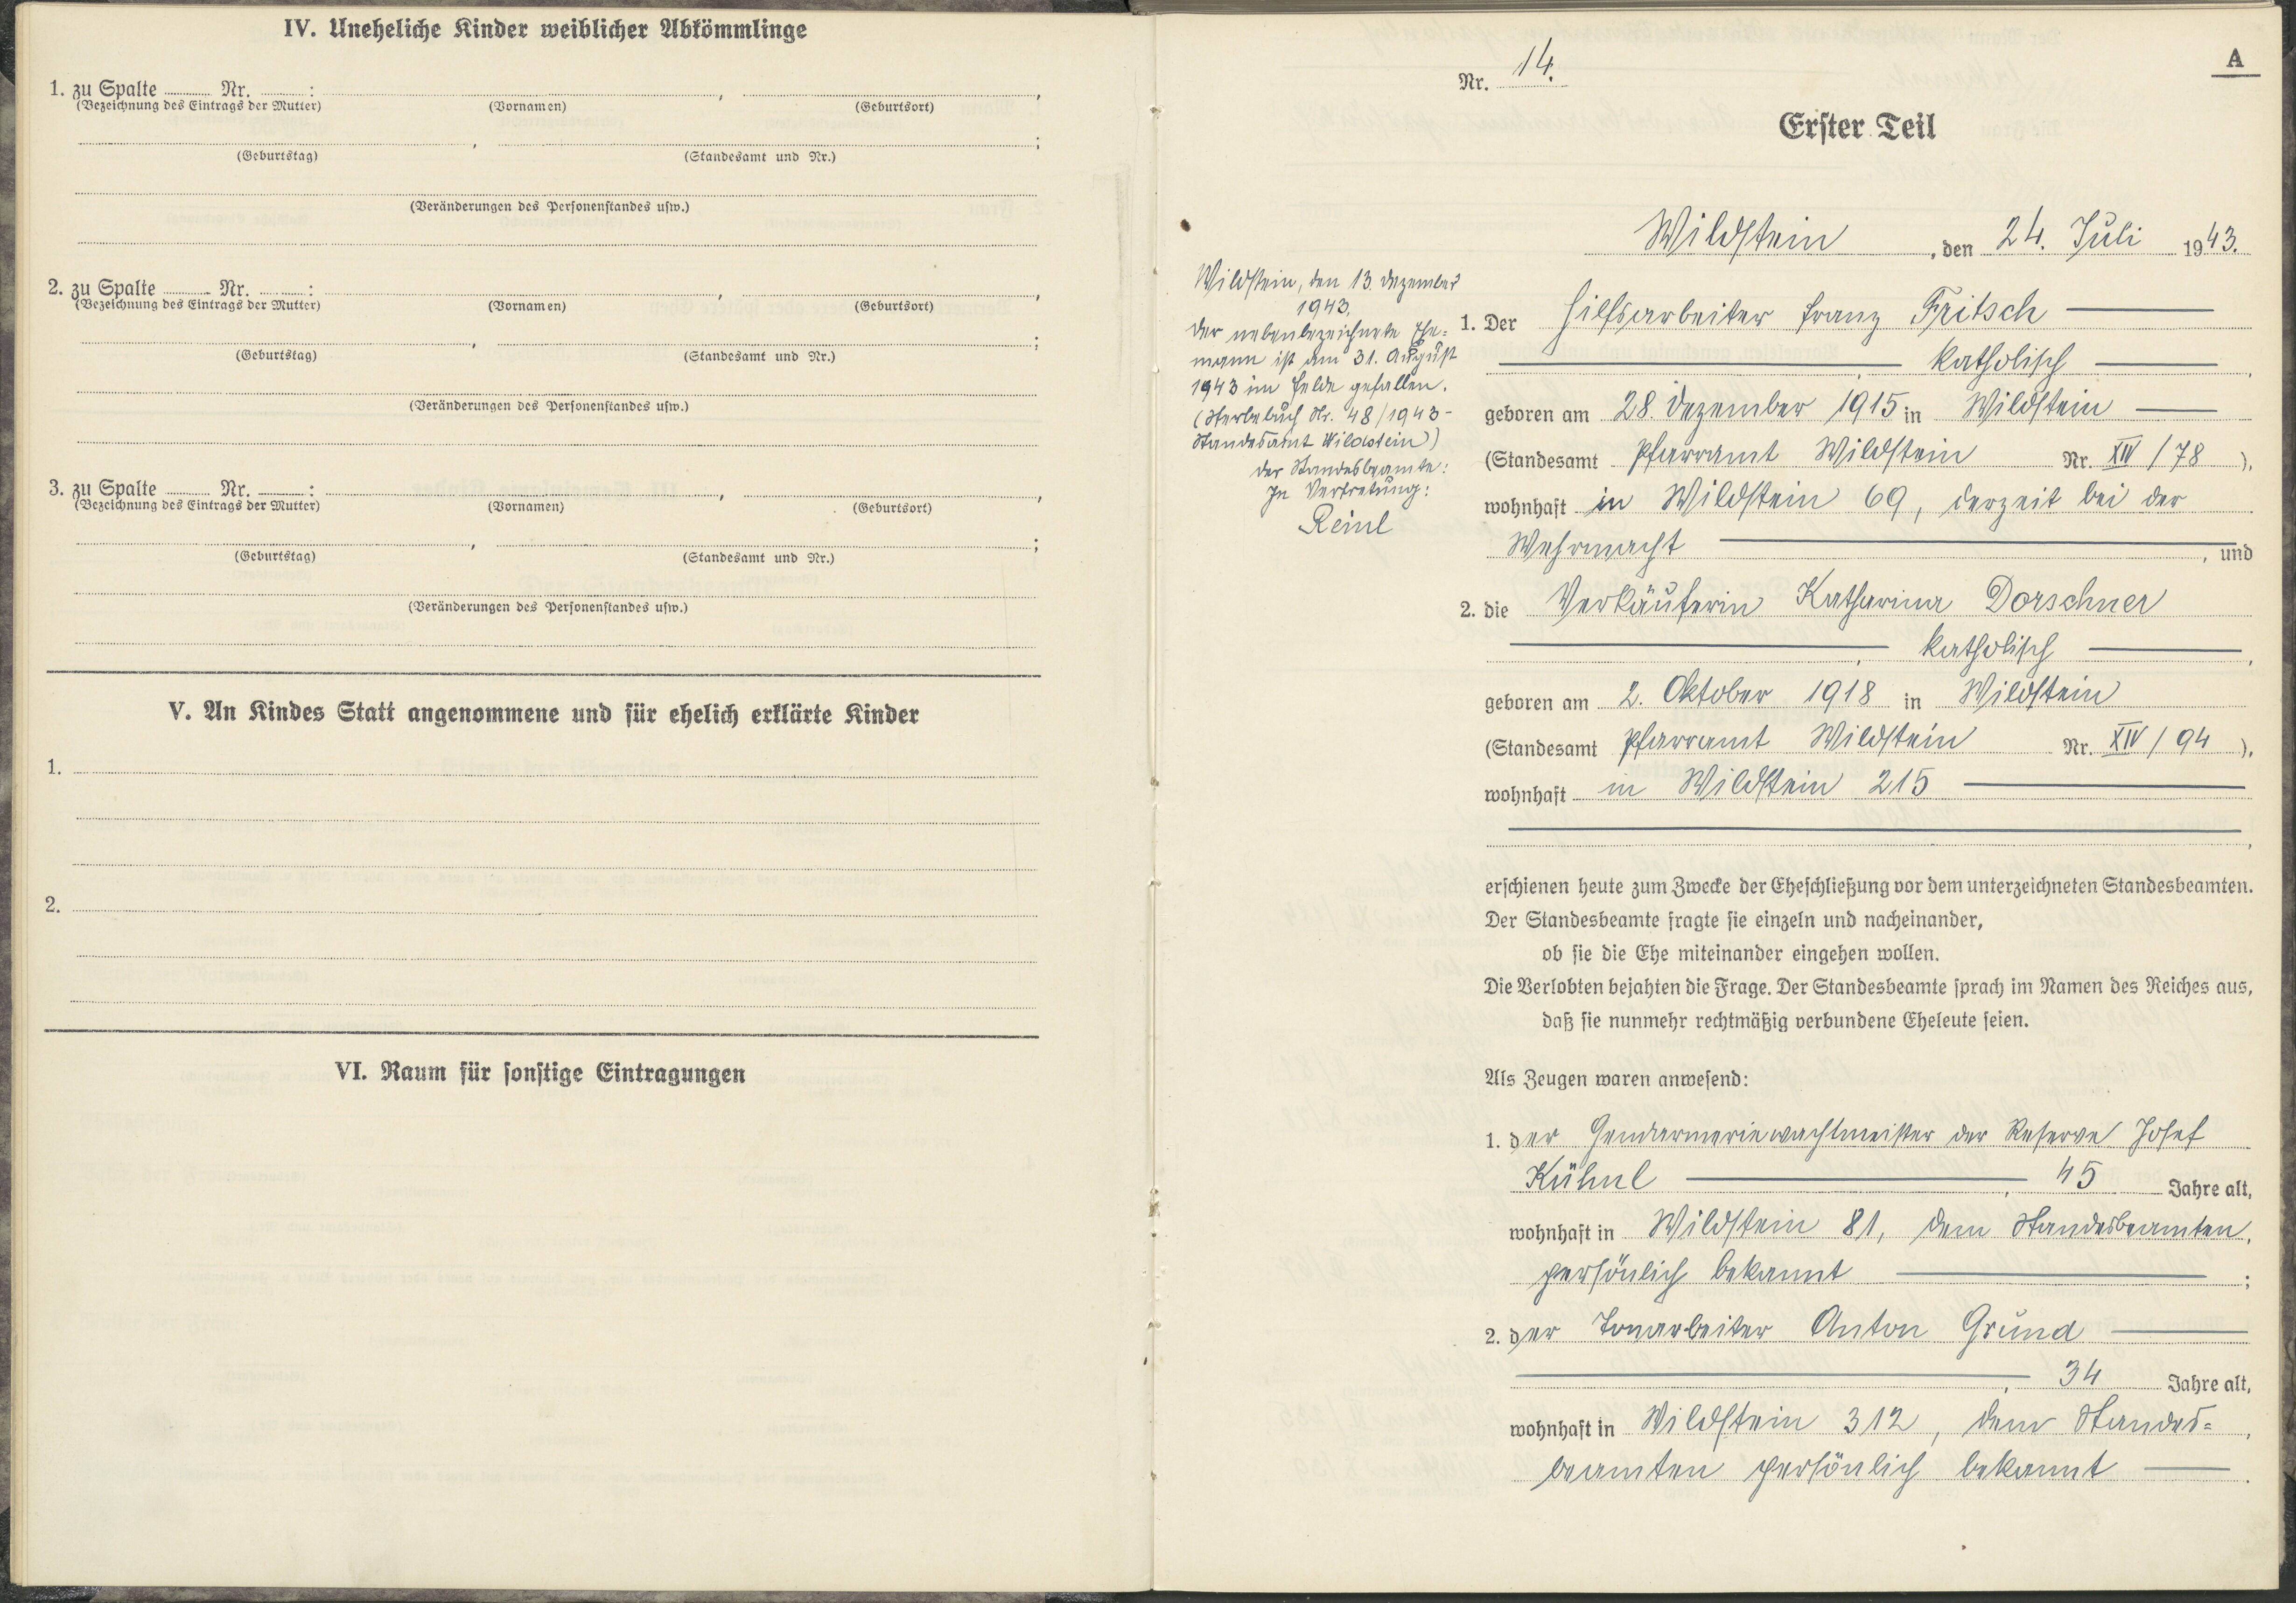 IV. Uneheliche Kinder weiblicher Abkömmlinge
1. zu Spalte ........ Nr. ........ :
(Bezeichnung des Eintrags der Mutter) (Vornamen) (Geburtsort)
(Geburtstag) (Standesamt und Nr.)
(Veränderungen des Personenstandes usw.)
2. zu Spalte ........ Nr. ........ :
(Bezeichnung des Eintrags der Mutter) (Vornamen) (Geburtsort)
(Geburtstag) (Standesamt und Nr.)
(Veränderungen des Personenstandes usw.)
3. zu Spalte ........ Nr. ........ :
(Bezeichnung des Eintrags der Mutter) (Vornamen) (Geburtsort)
(Geburtstag) (Standesamt und Nr.)
(Veränderungen des Personenstandes usw.)
V. An Kindes Statt angenommene und für ehelich erklärte Kinder
1.
2.
VI. Raum für sonstige Eintragungen
A
Nr. 14.
Erster Teil
Wildstein, den 24. Juli 1943.
Wildstein, den 13. Dezember
1943.
Der nebenbezeichnete Ehe=
mann ist am 31. August
1943 im Felde gefallen.
(Sterbebuch Nr. 48/1943-
Standesamt Wildstein)
Der Standesbeamte:
In Vertretung:
Reinl
1. Der Hilfsarbeiter Franz Fritsch
, katholisch,
geboren am 28. Dezember 1915 in Wildstein
(Standesamt Pfarramt Wildstein Nr. XIV/78),
wohnhaft in Wildstein 69, derzeit bei der
Wehrmacht, und
2. die Verkäuferin Katharina Dorschner
, katholisch,
geboren am 2. Oktober 1918 in Wildstein
(Standesamt Pfarramt Wildstein Nr. XIV/94),
wohnhaft in Wildstein 215
,
erschienen heute zum Zwecke der Eheschließung vor dem unterzeichneten Standesbeamten.
Der Standesbeamte fragte sie einzeln und nacheinander,
ob sie die Ehe miteinander eingehen wollen.
Die Verlobten bejahten die Frage. Der Standesbeamte sprach im Namen des Reiches aus,
daß sie nunmehr rechtmäßig verbundene Eheleute seien.
Als Zeugen waren anwesend:
1. der Gendarmeriewachtmeister der Reserve Josef
Kühnl, 45 Jahre alt,
wohnhaft in Wildstein 81, dem Standesbeamten,
persönlich bekannt;
2. der Tonarbeiter Anton Grund
, 34 Jahre alt,
wohnhaft in Wildstein 312, dem Standes=,
beamten persönlich bekannt.